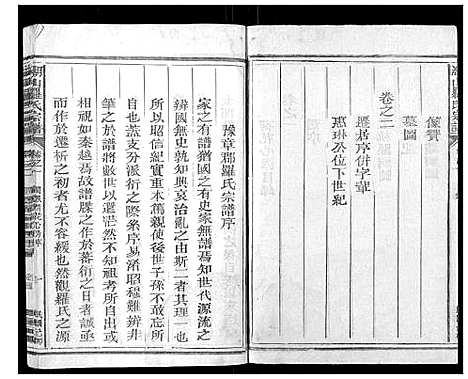 像贊
墓圖
卷之二
遷居序併字輩
惠琳公位下世紀
豫章郡羅氏宗譜序
家之有譜猶國之有史家無譜焉知世代源流之
辨國無史孰知興衰治亂之由斯二者其理一也
然而昭信紀實重本篤親使後世子孫不敢忘所
自焉支分派衍之際系序易淆昭穆難辨非
筆之於譜將數世以還茫然不知祖考所自出或
相視如秦越焉故譜牒之作於蕃衍之日者誠亟
而作於遷析之初者尤不容緩也然觀羅氏之源
羅氏宗譜
卷之一